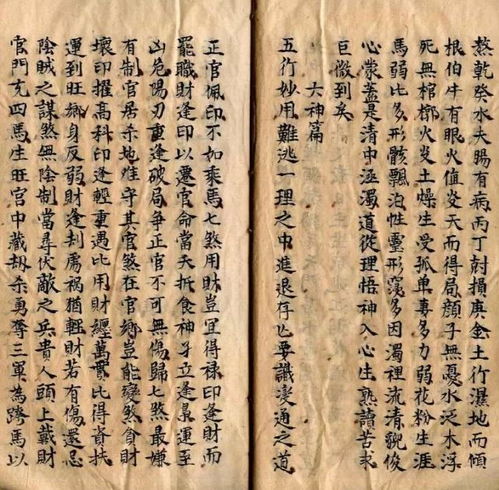 熬乾癸水夫腸有病丙丁尅損庚金土行濕地而傾
根伯牛有眼火值炎天而得局顏子無憂水泛木浮
死無棺槨火炎土燥生受孤單喜多力弱花粉生涯
馬弱比多形骸飄泊性靈形寢多因濁裡流清貌俊
心蒙蓋是清中涵濁道從理悟神入心生熟讀苦求
巨微到矣
六神篇
五行妙用難逃一理之中進退存亡要識变通之道
正官佩印不如乘馬七煞用財豈宜得祿印逢財而
罷職財逢印以遷官命當夭折食神孑立逢梟運至
凶危陽刃重逢破局爭正官不可無傷歸七煞最嫌
有制官居杀地难守其官煞在官鄉豈能變煞貪財
壞印擢高科印逢輕重遇比用財纏萬貫比得資扶
運到旺鄉身反弱財逢刦處禍猶輕財若有傷還忌
陰賊之謀煞無陰制當尋伏敵之兵貴人頭上戴財
官門充四馬生旺宮中藏刼杀勇奪三軍為跨馬以